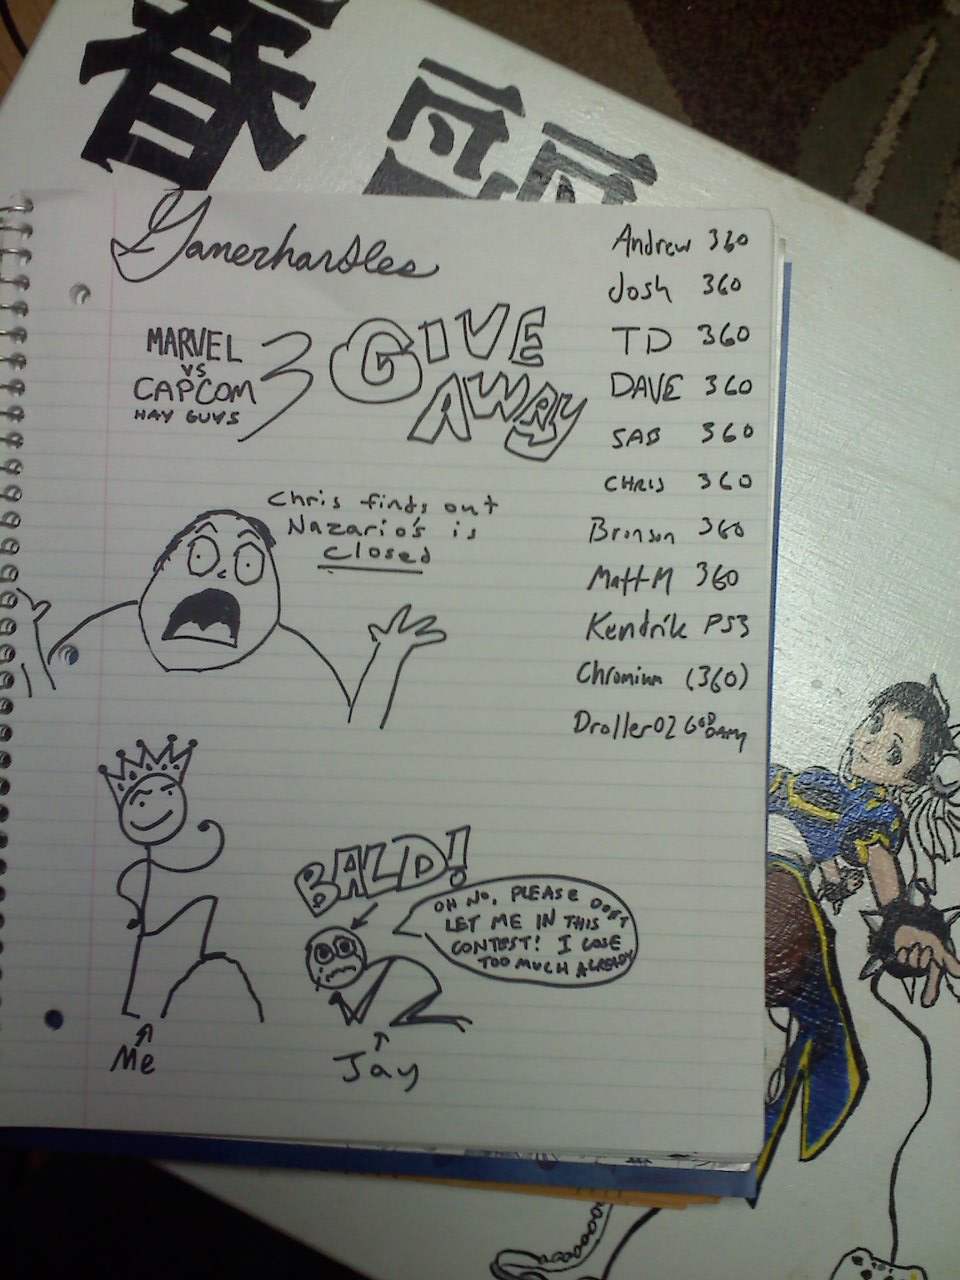 春
Gamerhandles
MARVEL
VS
CAPCOM
3
HAY GUYS
GIVE
AWAY
Andrew 360
Josh 360
TD 360
DAVE 360
SAB 360
CHRIS 360
Bronson 360
Matt M 360
Kendrik PS3
Chromium (360)
Droller02 GODDAMN
Chris finds out
Nazario's is
closed
BALD!
OH NO, PLEASE DON'T
LET ME IN THIS
CONTEST! I LOSE
TOO MUCH ALREADY
Me
Jay